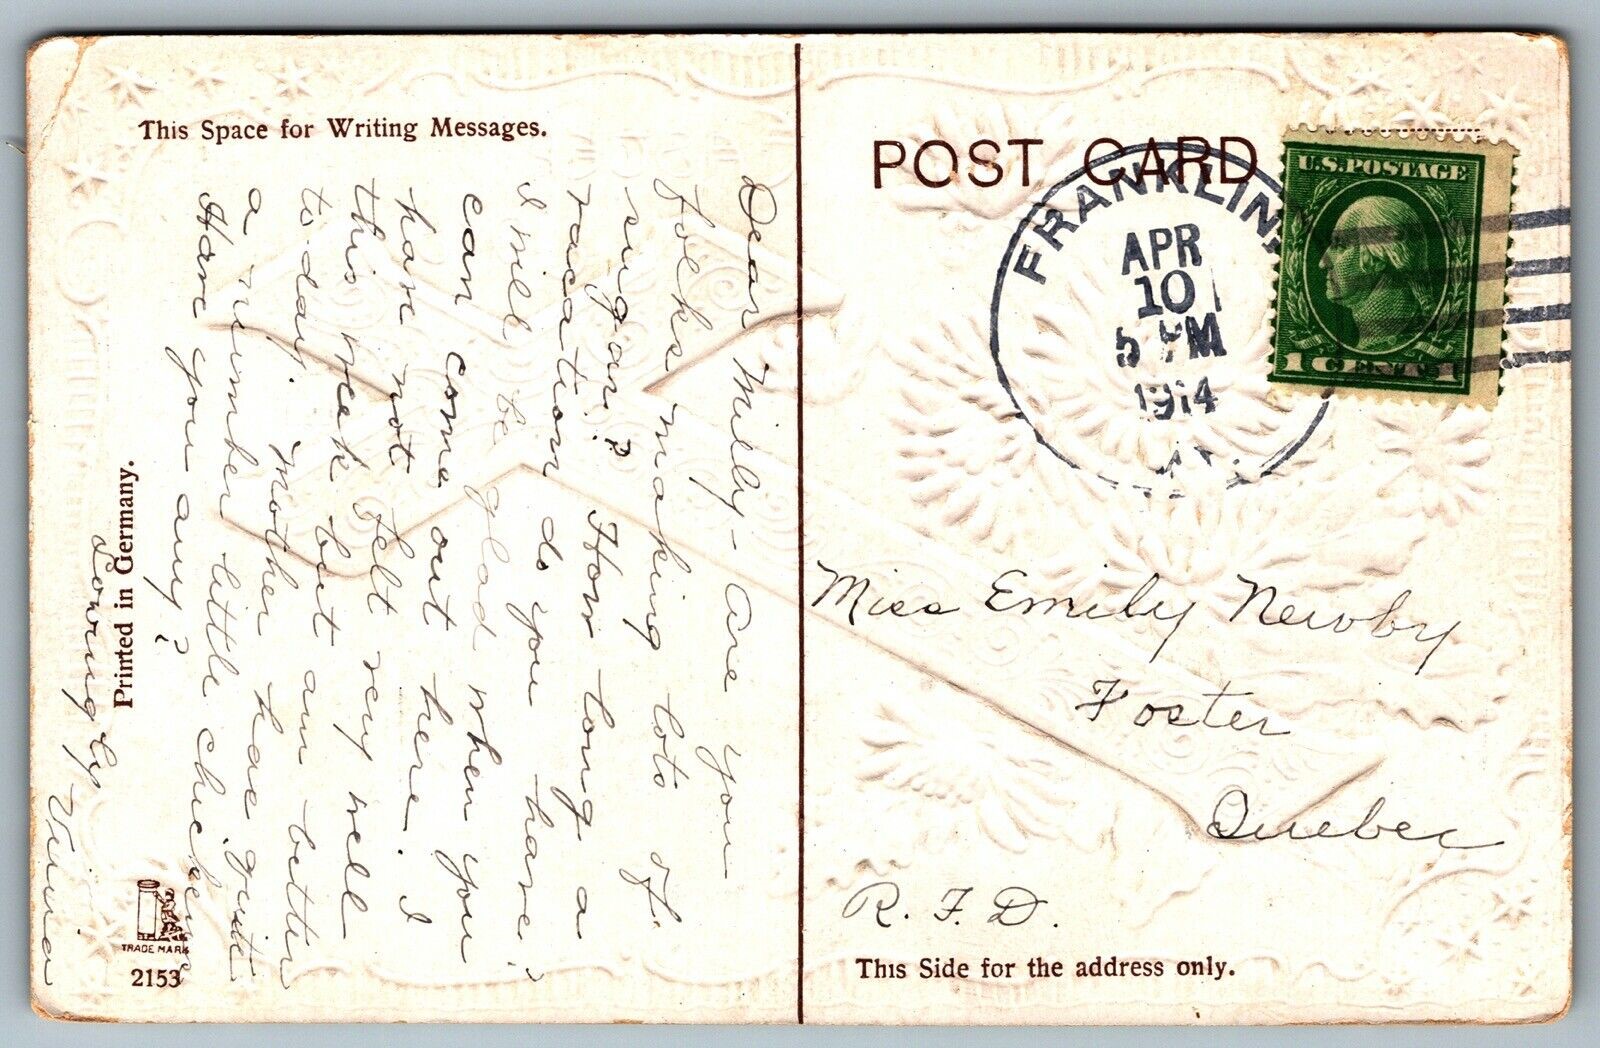 This Space for Writing Messages.
Dear Milly - Are you
folks making lots of
sugar? How long a
vacation do you have?
I will be glad when you
can come out here. I
have not felt very well
this week but am better
to day. Mother has quite
a number little chickens
Have you any?
Lovingly
Printed in Germany.
TRADE MARK
2153
POST CARD
FRANKLIN,
APR
10
5 PM
1914
U.S.POSTAGE
1 CENT 1
Miss Emily Newby
Foster
Quebec
R. F. D.
This Side for the address only.